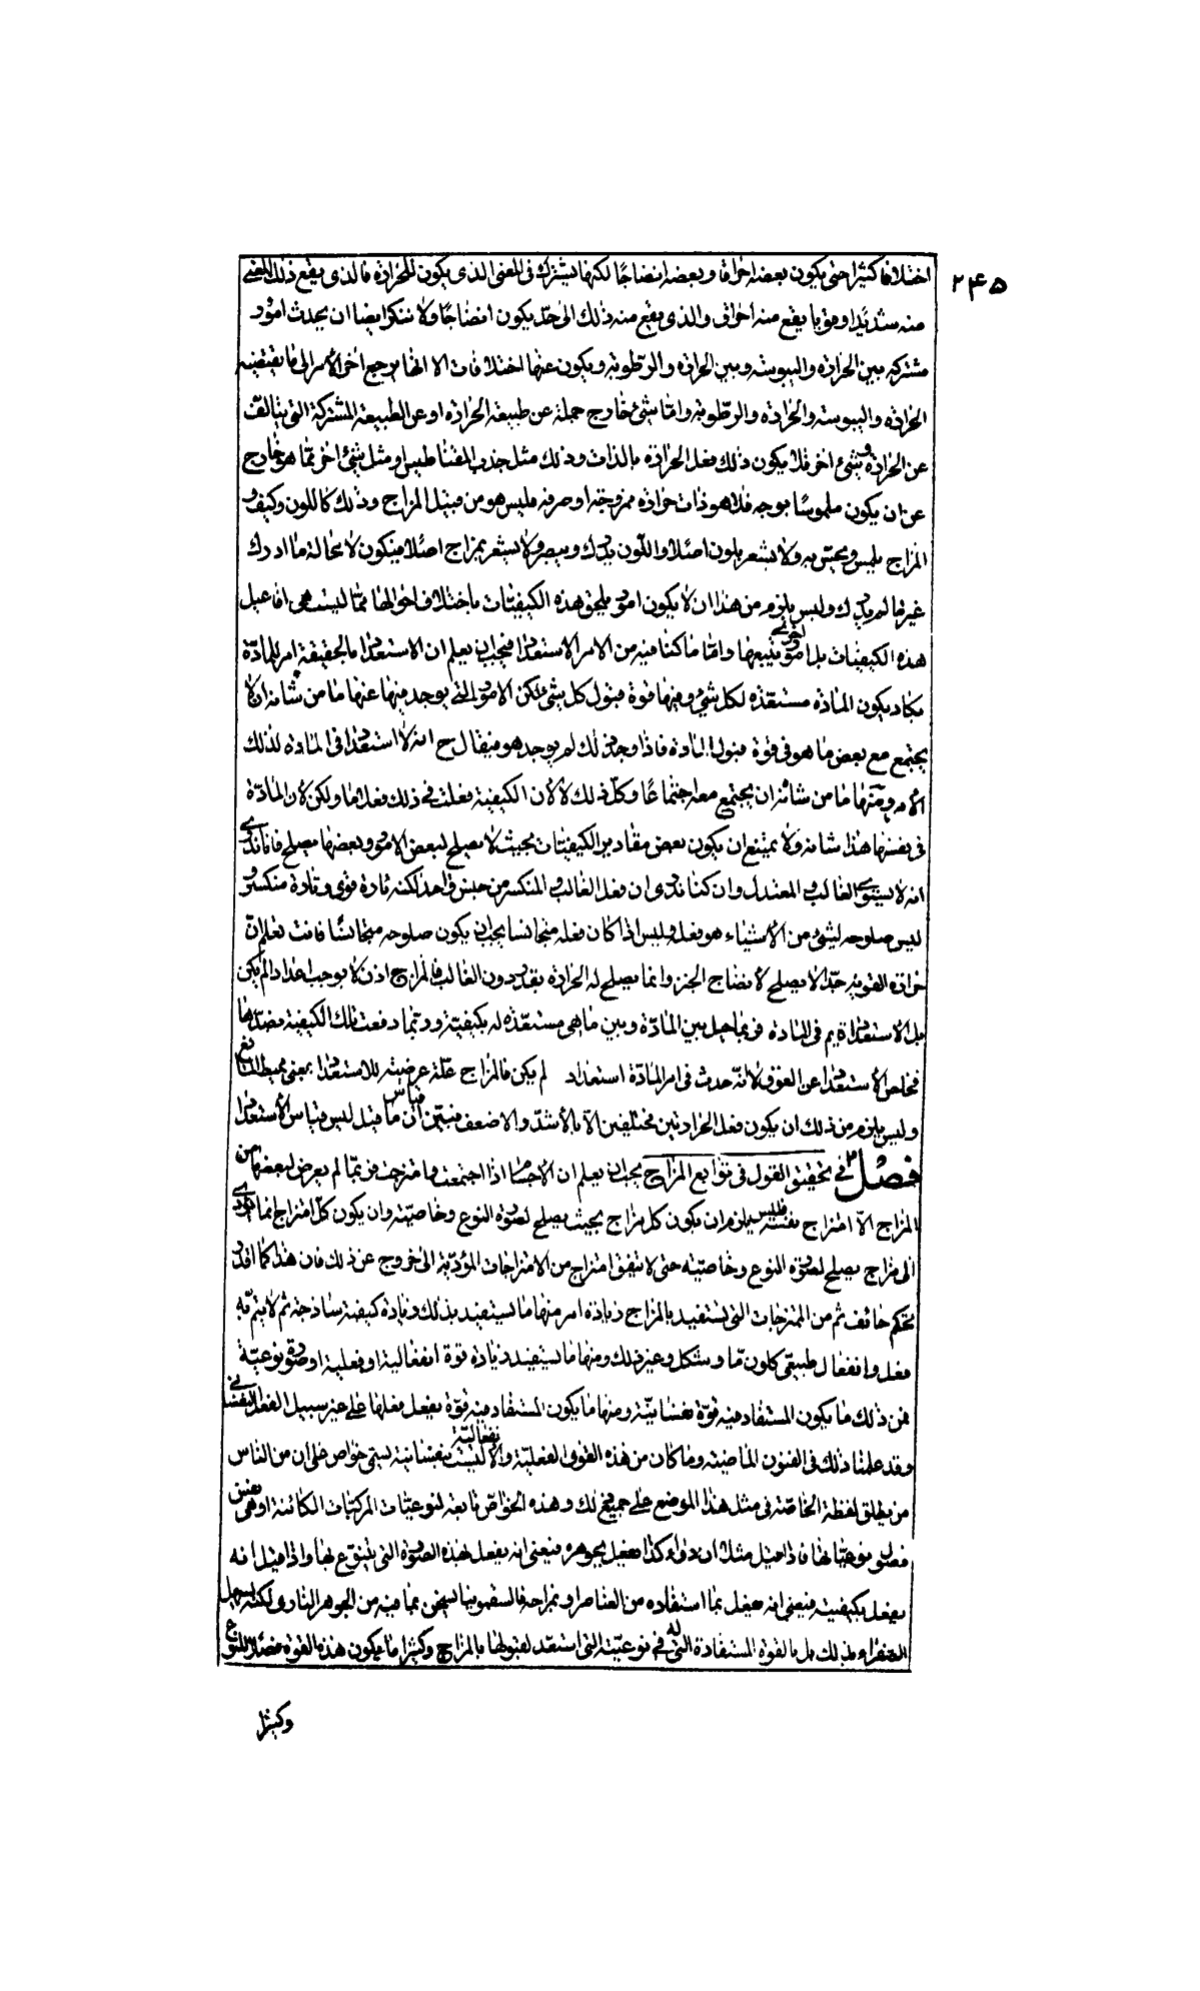 ٢٤٥
اختلافا كثيرا حتى يكون بعضه احراقا وبعضه انضاجا لكنها يشترك فى المعنى الذى يكون للحرارة فالذى يقع ذلك المعنى
منه شديدا وقويا يقع منه احراق والذى يقع منه ذلك الى حد يكون انضاجا ولا ننكر ايضا ان يحدث امور
مشتركة بين الحرارة واليبوسة وبين الحرارة والرطوبة ويكون عنها اختلافات الا انها يرجع اخر الأمر الى ما يقتضيه
الحرارة واليبوسة والحرارة والرطوبة واما شئ خارج جملة عن طبيعة الحرارة او عن الطبيعة المشتركة التى يتالف
عن الحرارة وشئ اخر فلا يكون ذلك فعل الحرارة بالذات وذلك مثل جذب المغناطيس او مثل شئ اخر مما هو خارج
عن ان يكون ملموسا بوجه فلا هو ذات حرارة ممزوجة او صرفة فليس هو من قبيل المزاج وذلك كاللون وكيف و
المزاج يلمس ويحس به ولا يشعر بلون اصلا واللون يدرك ويبصر ولا يشعر بمزاج اصلا فيكون لا محالة ما ادرك
غير ما لم يدرك وليس يلزم من هذا ان لا يكون امور يلحق هذه الكيفيات باختلاف احوالها مما ليست هى افاعيل
هذه الكيفيات بل امور اخرى يتبعها واما ما كنا فيه من الامر الاستعداد فيجب ان يعلم ان الاستعداد بالحقيقة امر للمادة
يكاد يكون المادة مستعدة لكل شئ وفيها قوة قبول كل شئ لكن الامور التى يوجد فيها عنها ما من شانه ان لا
يجتمع مع بعض ما هو فى قوة قبول المادة فاذا وجد ذلك لم يوجد هو فيقال ح انه لا استعداد فى المادة لذلك
الأمر ومنها ما من شانه ان يجتمع معه اجتماعا وكل ذلك لا لان الكيفية فعلت فى ذلك فعلا ما ولكن لان المادة
فى نفسها هذا شانه ولا يمتنع ان يكون بعض مقادير الكيفيات بحيث لا يصلح لبعض الامور وبعضها يصلح فانا ندرى
انه لا يستوى الغالب والمعتدل وان كنا ندرى ان فعل الغالب والمنكسر من جنس واحد لكنه تارة قوى وتارة منكسر و
ليس صلوحه لشئ من الأشياء هو فعله وليس اذا كان فعله متجانسا يجب ان يكون صلوحه متجانسا فانت تعلم ان
حرارة القوية جدا لا يصلح لانضاج الخبز وانما يصلح له الحرارة بقدر دون الغالب فالمزاج اذن لا يوجب اعدادا لم يكن
بل الاستعداد قديم فى المادة فربما حيل بين المادة وبين ما هى مستعدة له بكيفية وربما دفعت تلك الكيفية بضدها
فخلص الأستعداد عن العوق لا انه حدث فى امر المادة استعداد لم يكن فالمزاج علة عرضية للاستعداد بمعنى مميط المانع
وليس يلزم من ذلك ان يكون فعل الحرارتين مختلفين الا بالأشد والاضعف فتبين ان قياس ما قيل ليس قياس الأستعداد
فصل فى تحقيق القول فى توابع المزاج يجب ان يعلم ان الاجسام اذا اجتمعت وامتزجت فربما لم يعرض لبعضها من
المزاج الا امتزاج نفسه فليس يلزم ان يكون كل مزاج بحيث يصلح لصورة النوع وخاصيته وان يكون كل امتزاج انما يؤدى
الى مزاج يصلح لصورة النوع وخاصيته حتى لا يتفق امتزاج من الامتزاجات المؤدية الى خروج عن ذلك فان هذا كما اقدر
تحكم حائف ثم من الممتزجات التى يستفيد بالمزاج زيادة امر منها ما يستفيد بذلك زيادة كيفية ساذجة ثم لا يتم به
فعل وانفعال طبيعى كلون ما وشكل وغير ذلك ومنها ما يستفيد زيادة قوة انفعالية او فعلية او صورة نوعية
فمن ذلك ما يكون المستفاد فيه قوة نفسانية ومنها ما يكون المستفاد فيه قوة يفعل فعلها على غير سبيل الفعل النفسانى
وقد علمنا ذلك فى الفنون الماضية وما كان من هذه القوى الفعلية والانفعالية ليست بنفسانية يسمى خواص على ان من الناس
من يطلق لفظة الخاصة فى مثل هذا الموضع على جميع ذلك وهذه الخواص تابعة لنوعيات المركبات الكائنة او هى بعينها
فصول نوعياتها فاذا قيل مثلا ان دواء كذا يفعل بجوهره فنعنى انه يفعل بهذه الصورة التى يتنوع بها واذا قيل انه
يفعل بكيفيته فنعنى انه يفعل بما استفاده من العناصر او بمزاجه فالسقمونيا يسخن بما فيه من الجوهر النارى لكنه يسهل
الصفراء لا بذلك بل بالقوة المستفادة التى له فى نوعيته التى استعد لقبولها بالمزاج وكثيرا ما يكون هذه القوة فصلا للنوع
وكثيرا